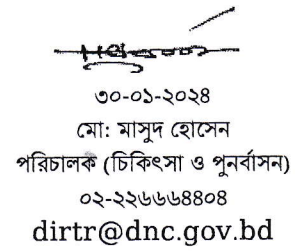 ৩০-০১-২০২৪
মো: মাসুদ হোসেন
পরিচালক (চিকিৎসা ও পুনর্বাসন)
০২-২২৬৬৬৪৪০৪
dirtr@dnc.gov.bd